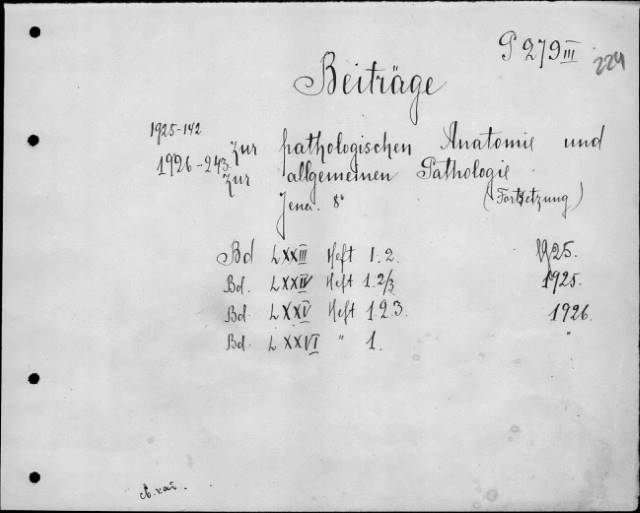 P 279 III 224
Beiträge
1925-142
zur pathologischen Anatomie und
1926-243.
zur allgemeinen Pathologie
Jena. 8° (Fortsetzung)
Bd LXXIII Heft 1.2. 1925.
Bd. LXXIV Heft 1.2/3 1925.
Bd. LXXV Heft 1.2.3. 1926.
Bd. LXXVI " 1. "